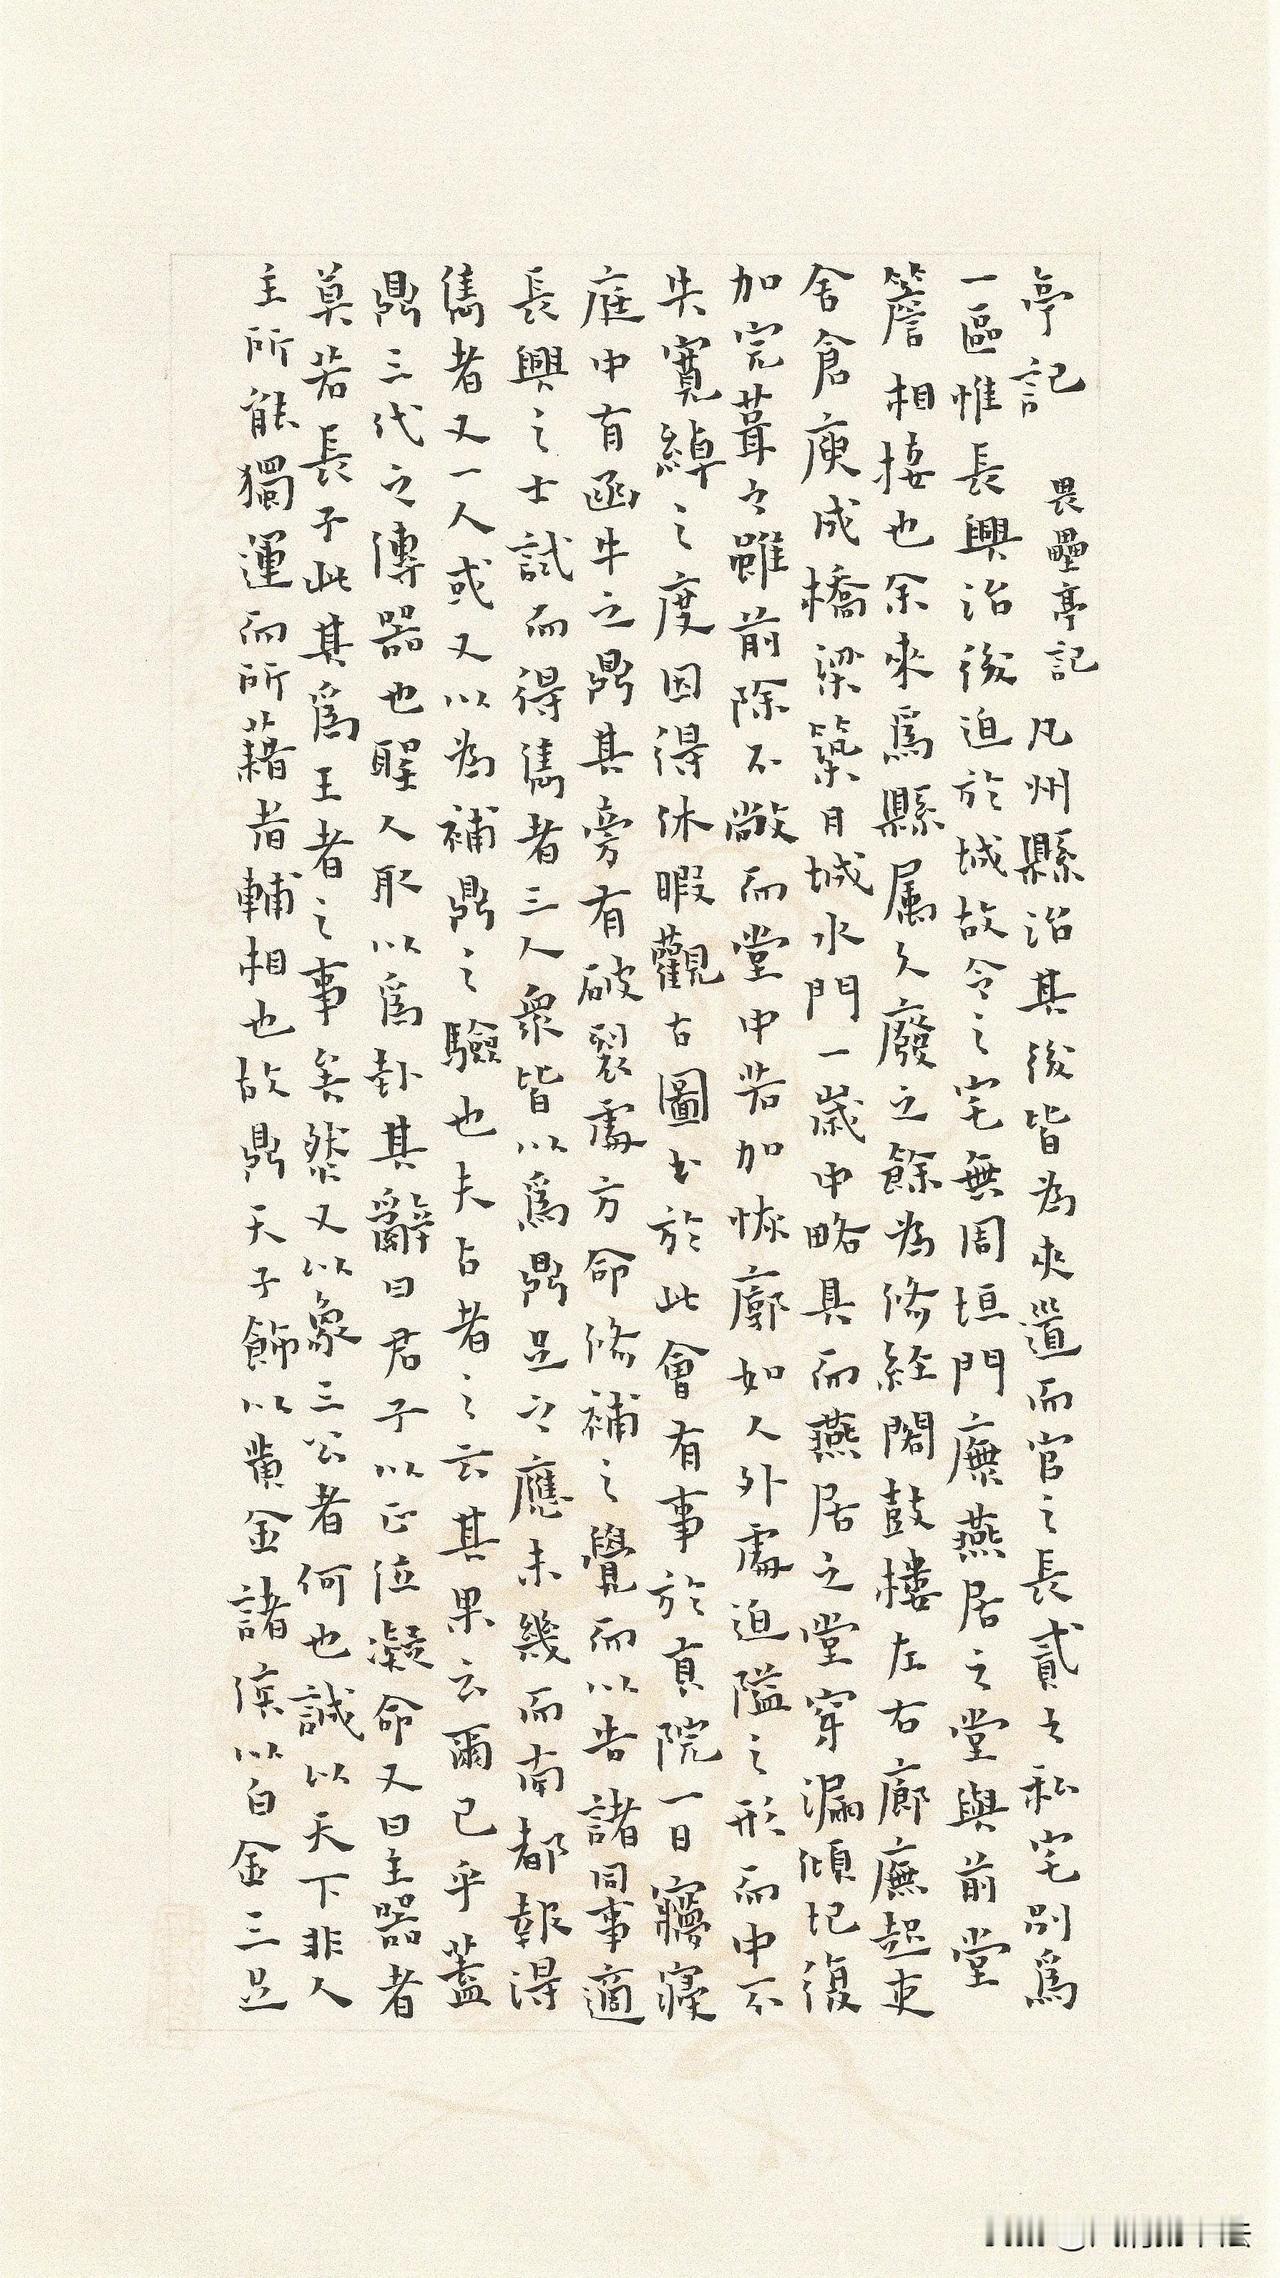 亭記 畏壘亭記 凡州縣治其後皆為夾道而官之長貳之私宅別為
一區惟長興治後迫於城故令之宅無周垣門廡燕居之堂與前堂
簷相接也余來為縣屬久廢之餘為脩經閣鼓樓左右廊廡起吏
舍倉庾成橋梁築月城水門一歲中略具而燕居之堂穿漏傾圮復
加完葺之雖前除不敞而堂中若加恢廓如人外處迫隘之形而中不
失寬綽之度因得休暇觀古圖書於此會有事於貢院一日寢寤
庭中有函牛之鼎其旁有破裂處方命脩補之覺而以告諸同事適
長興之士試而得雋者三人衆皆以為鼎足之應未幾而南都報得
雋者又一人或又以為補鼎之驗也夫占者之云其果云爾已乎蓋
鼎三代之傳器也聖人取以為卦其辭曰君子以正位凝命又曰主器者
莫若長子此其為王者之事矣然又以象三公者何也誠以天下非人
主所能獨運而所藉者輔相也故鼎天子飾以黃金諸侯以白金三足